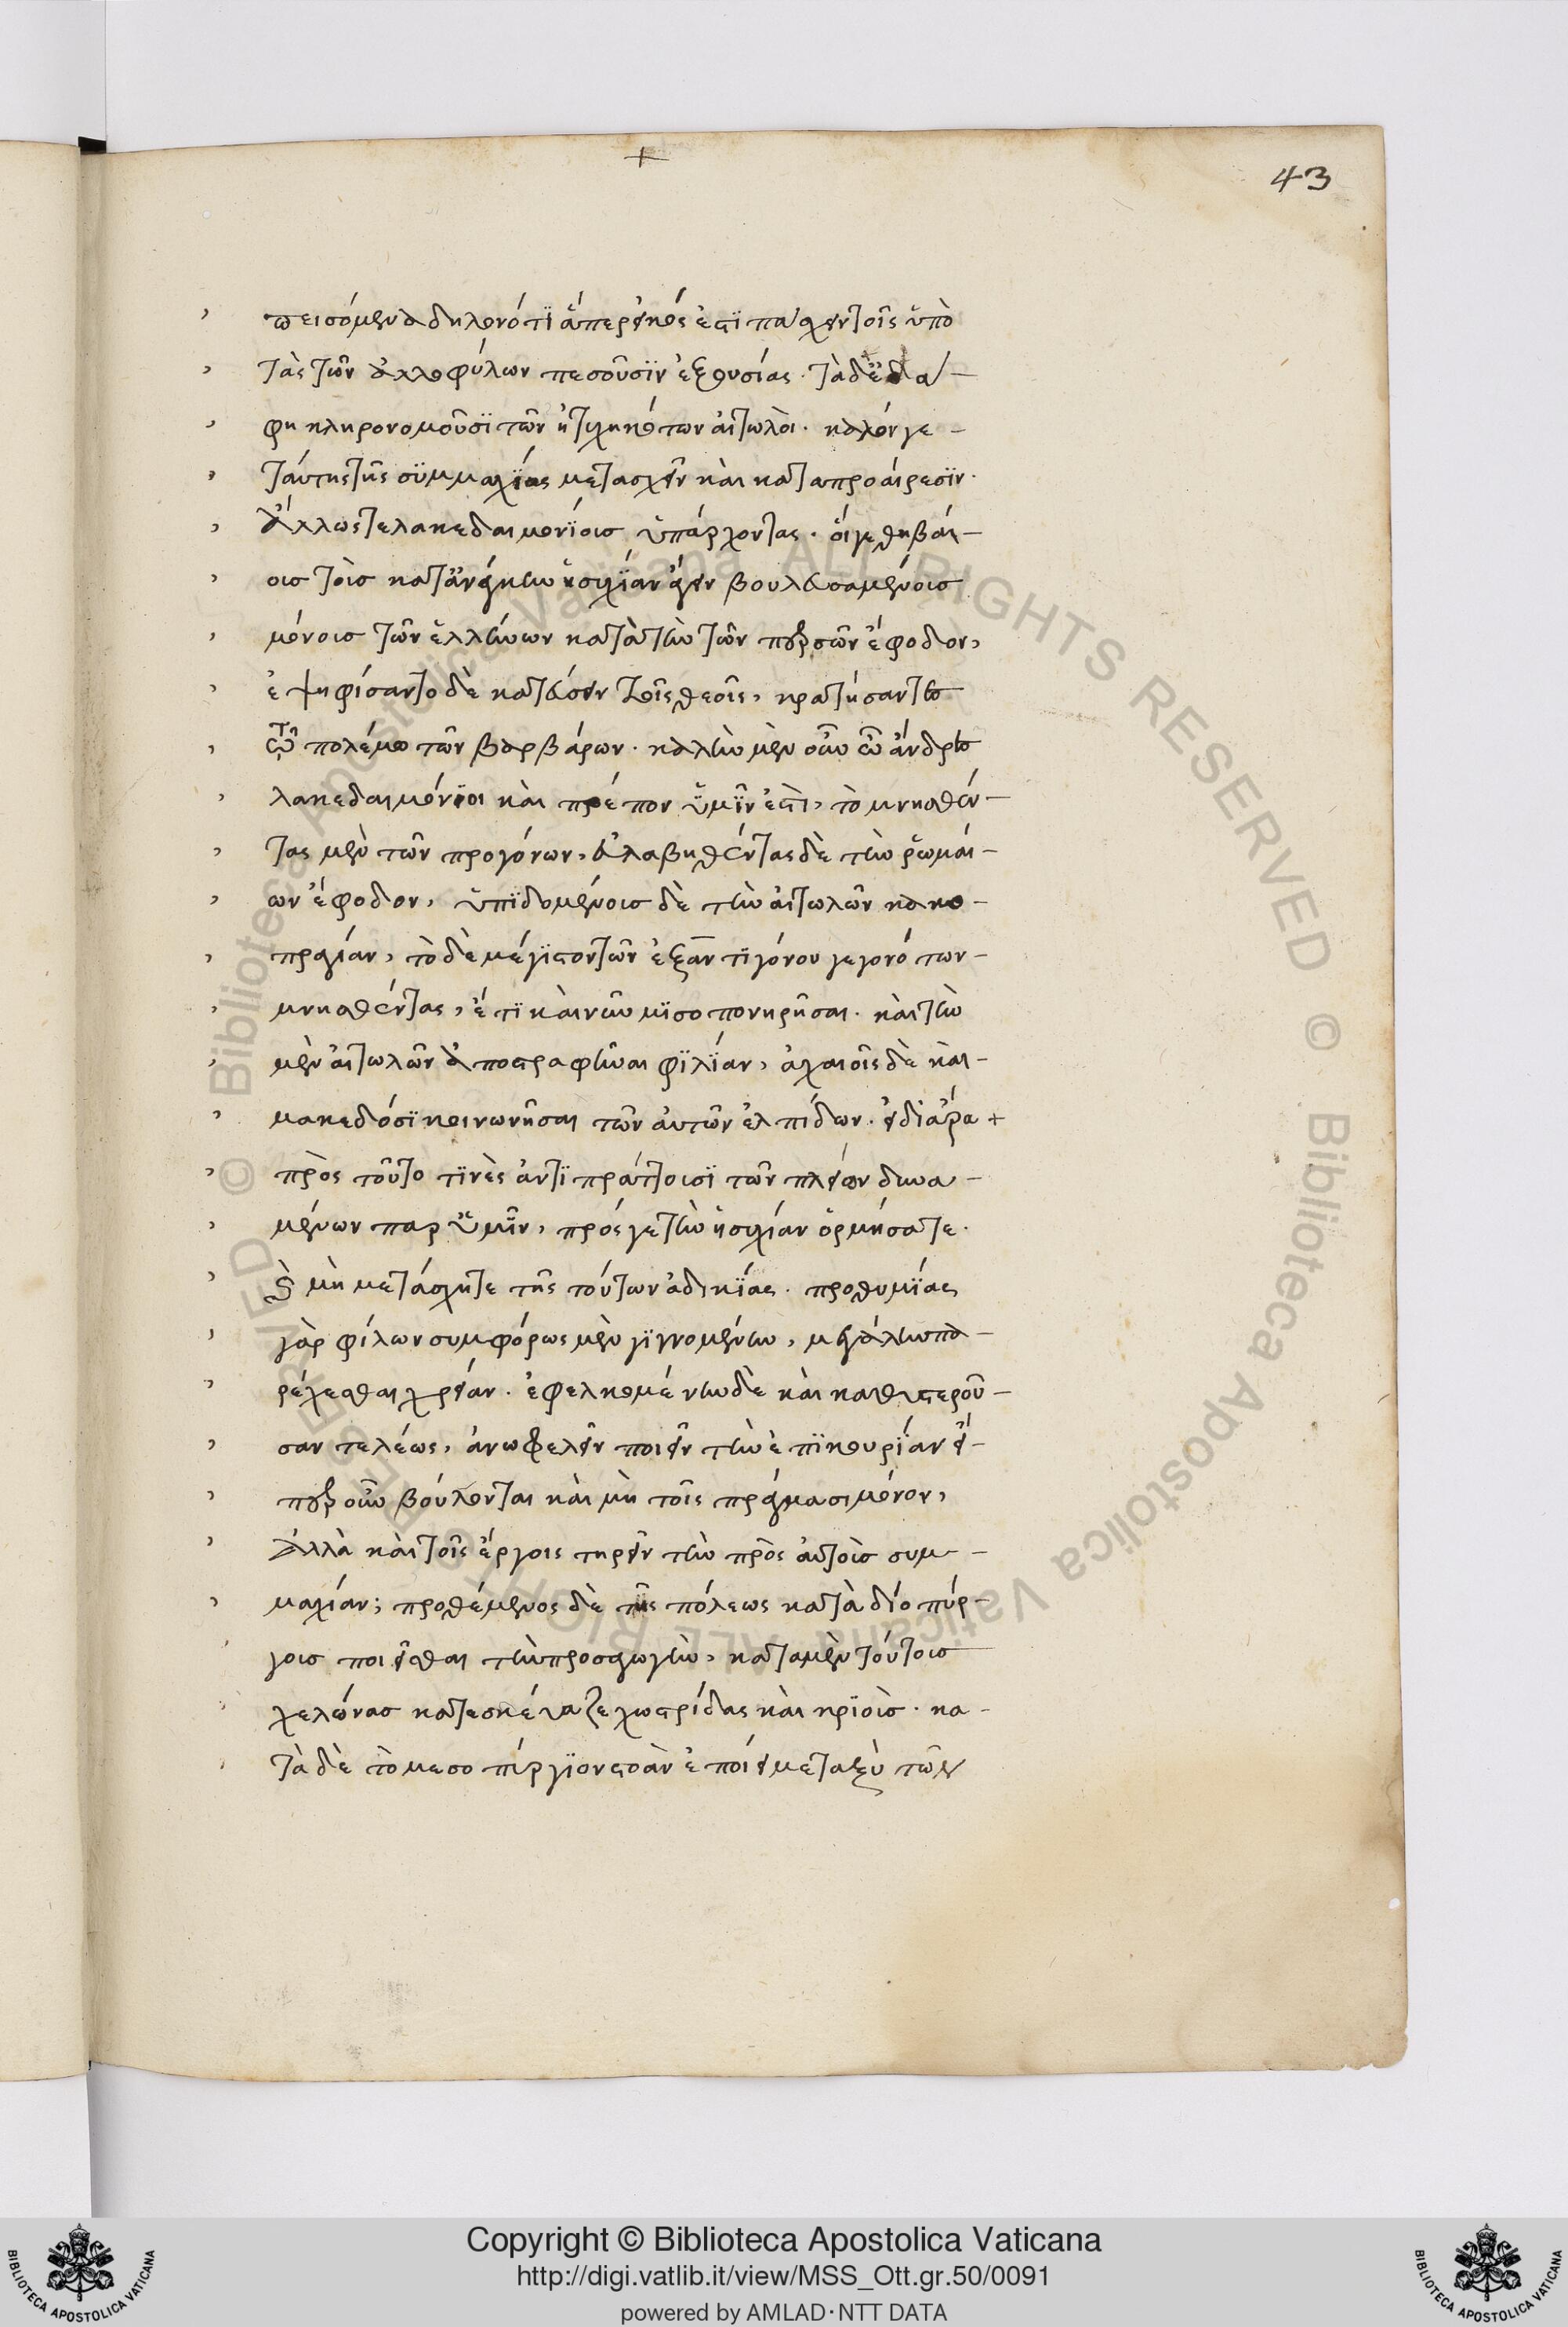 +
43
πεισόμενα δηλονότι ἅπερ εἰκός ἐστι πάσχειν τοῖς ὑπὸ
τὰς τῶν ἀλλοφύλων πεσοῦσιν ἐξουσίας. τὰ δὲ ἐδά-
φη κληρονομοῦσι τῶν ἠτυχηκότων αἰτωλοὶ. καλόν γε
ταύτης τῆς συμμαχίας μετασχεῖν καὶ κατὰ προαίρεσιν.
ἄλλως τε λακεδαιμονίοις ὑπάρχοντας. οἵ γε θηβαί-
οις τοῖς κατ' ἀνάγκην ἡσυχίαν ἄγειν βουλευσαμένοις
μόνοις τῶν ἑλλήνων κατὰ τὴν τῶν περσῶν ἔφοδον,
ἐψηφίσαντο δὲ κατεύσειν τοῖς θεοῖς, κρατήσαντες
τῷ πολέμῳ τῶν βαρβάρων. καλὴν μὲν οὖν ὦ ἄνδρες
λακεδαιμόνιοι καὶ πρέπον ὑμῖν ἐστὶ, τὸ μνησθέν-
τας μὲν τῶν προγόνων, εὐλαβηθέντας δὲ τὴν ῥωμαί-
ων ἔφοδον, ὑπιδομένοις δὲ τὴν αἰτωλῶν κακο-
πραγίαν, τὸ δὲ μέγιστον τῶν ἐξ ἀντιγόνου γεγονότων
μνησθέντας, ἔτι καὶ νῦν μισοπονηρῆσαι. καὶ τὴν
μὲν αἰτωλῶν ἀποστραφῆναι φιλίαν, ἀχαιοῖς δὲ καὶ
μακεδόσι κοινωνῆσαι τῶν αὐτῶν ἐλπίδων. εἰ δι' ἄρα +
πρὸς τοῦτο τινὲς ἀντιπράττοισι τῶν πλεῖον δυνα-
μένων παρ' ὑμῖν, πρός γε τὴν ἡσυχίαν ὁρμήσατε.
καὶ μὴ μετάσχητε τῆς τούτων ἀδικίας. προθυμίας
γὰρ φίλων συμφόρως μὲν γιγνομένην, μεγάλην πα-
ρέχεσθαι χρείαν. ἐφελκομένην δὲ καὶ καθυστεροῦ-
σαν τελέως, ἀνωφελεῖν ποιεῖν τὴν ἐπικουρίαν εἴ
περ οὖν βούλονται καὶ μὴ τοῖς πράγμασι μόνον,
ἀλλὰ καὶ τοῖς ἔργοις τηρεῖν τὴν πρὸς αὐτοὺς συμ-
μαχίαν; προθέμενος δὲ τῆς πόλεως κατὰ δύο πύρ-
γοις ποιεῖσθαι τὴν προσαγωγὴν, κατὰ μὲν τούτοις
χελώνας κατεσκεύαζε χωστρίδας καὶ κριοὺς. κα-
τὰ δὲ τὸ μεσοπύργιον στοὰν ἐποίει μεταξὺ τῶν
Copyright © Biblioteca Apostolica Vaticana
http://digi.vatlib.it/view/MSS_Ott.gr.50/0091
powered by AMLAD·NTT DATA